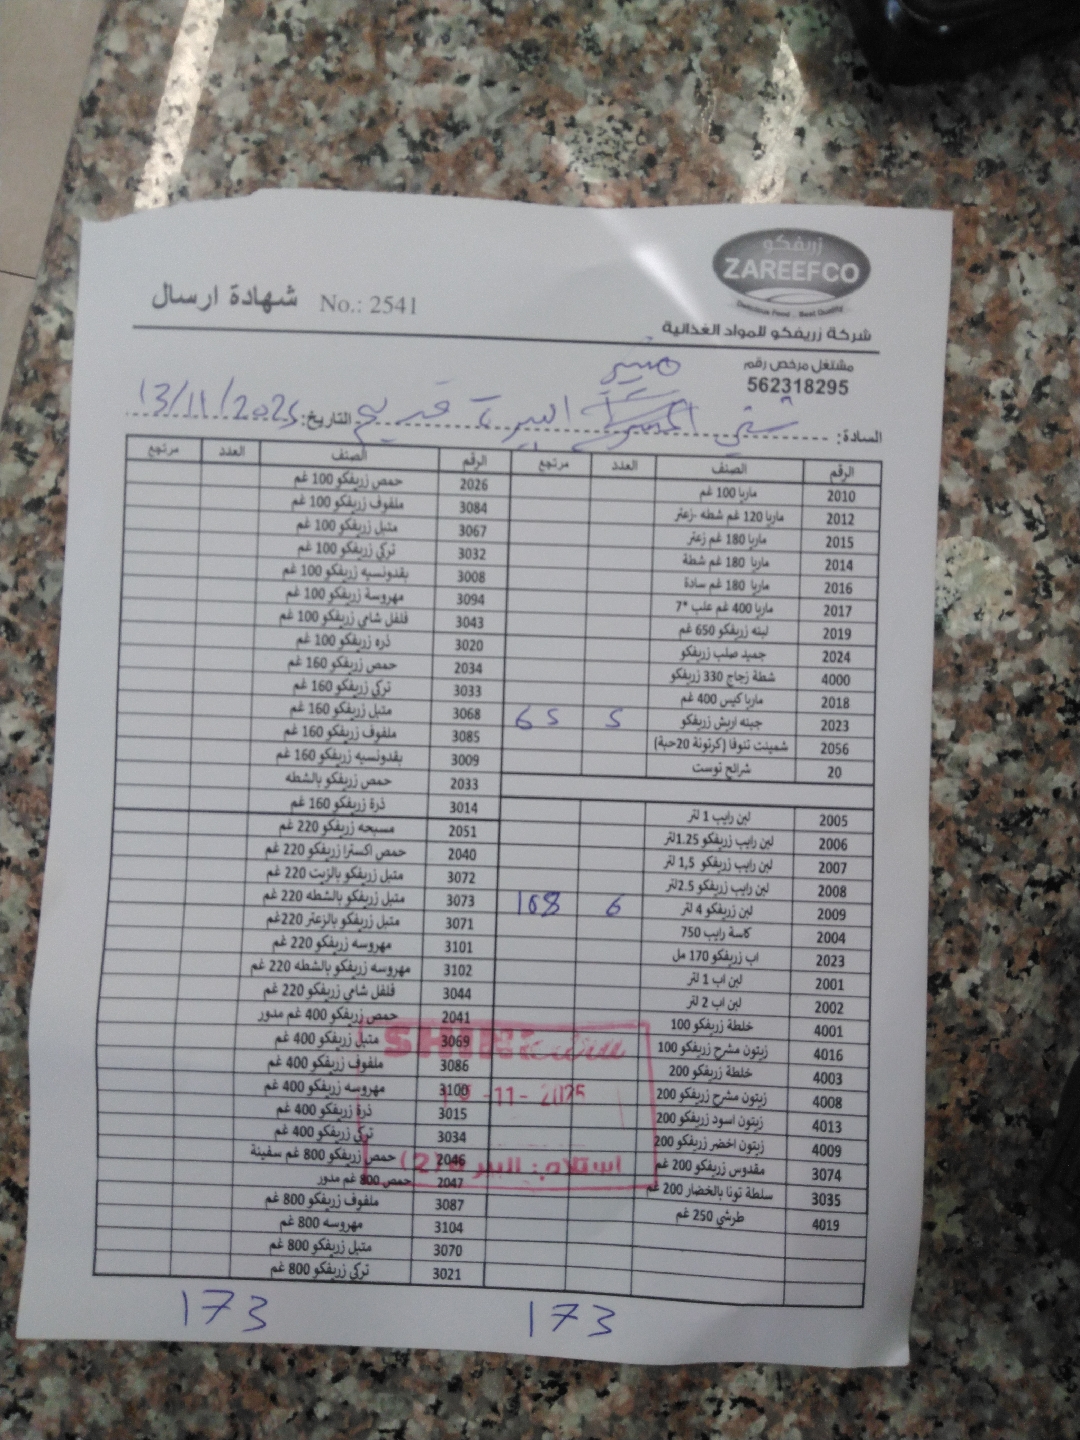 زريفكو
ZAREEFCO
Delicious Food . Best Quality
شهادة ارسال No.: 2541
شركة زريفكو للمواد الغذائية
مشتغل مرخص رقم
562318295
السادة: شني البيرة التاريخ: 13/11/2025
الرقم الصنف العدد مرتجع الرقم الصنف العدد مرتجع
2010 ماريا 100 غم 2026 حمص زريفكو 100 غم
2012 ماريا 120 غم شطه -زعتر 3084 ملفوف زريفكو 100 غم
2015 ماريا 180 غم زعتر 3067 متبل زريفكو 100 غم
2014 ماريا 180 غم شطة 3032 تركي زريفكو 100 غم
2016 ماريا 180 غم سادة 3008 بقدونسيه زريفكو 100 غم
2017 ماريا 400 غم علب *7 3094 مهروسة زريفكو 100 غم
2019 لبنه زريفكو 650 غم 3043 فلفل شامي زريفكو 100 غم
2024 جميد صلب زريفكو 3020 ذره زريفكو 100 غم
4000 شطة زجاج 330 زريفكو 2034 حمص زريفكو 160 غم
2018 ماريا كيس 400 غم 3033 تركي زريفكو 160 غم
2023 جبنه اريش زريفكو 5 65 3068 متبل زريفكو 160 غم
2056 شمينت تنوفا (كرتونة 20حبة) 3085 ملفوف زريفكو 160 غم
20 شرائح توست 3009 بقدونسيه زريفكو 160 غم
2033 حمص زريفكو بالشطه
2005 لبن رايب 1 لتر 3014 ذرة زريفكو 160 غم
2006 لبن رايب زريفكو 1.25لتر 2051 مسبحه زريفكو 220 غم
2007 لبن رايب زريفكو 1,5 لتر 2040 حمص اكسترا زريفكو 220 غم
2008 لبن رايب زريفكو 2.5لتر 3072 متبل زريفكو بالزيت 220 غم
2009 لبن زريفكو 4 لتر 6 108 3073 متبل زريفكو بالشطه 220 غم
2004 كاسة رايب 750 3071 متبل زريفكو بالزعتر 220غم
2023 اب زريفكو 170 مل 3101 مهروسه زريفكو 220 غم
2001 لبن اب 1 لتر 3102 مهروسه زريفكو بالشطه 220 غم
2002 لبن اب 2 لتر 3044 فلفل شامي زريفكو 220 غم
4001 خلطة زريفكو 100 2041 حمص زريفكو 400 غم مدور
4016 زيتون مشرح زريفكو 100 3069 متبل زريفكو 400 غم
4003 خلطة زريفكو 200 3086 ملفوف زريفكو 400 غم
4008 زيتون مشرح زريفكو 200 3100 مهروسه زريفكو 400 غم
4013 زيتون اسود زريفكو 200 3015 ذرة زريفكو 400 غم
4009 زيتون اخضر زريفكو 200 3034 تركي زريفكو 400 غم
3074 مقدوس زريفكو 200 غم 2046 حمص زريفكو 800 غم سفينة
3035 سلطة تونا بالخضار 200 غم 2047 حمص 800 غم مدور
4019 طرشي 250 غم 3087 ملفوف زريفكو 800 غم
3104 مهروسه 800 غم
3070 متبل زريفكو 800 غم
3021 تركي زريفكو 800 غم
-11- 2025
استلام: البيرة (2)
173 173